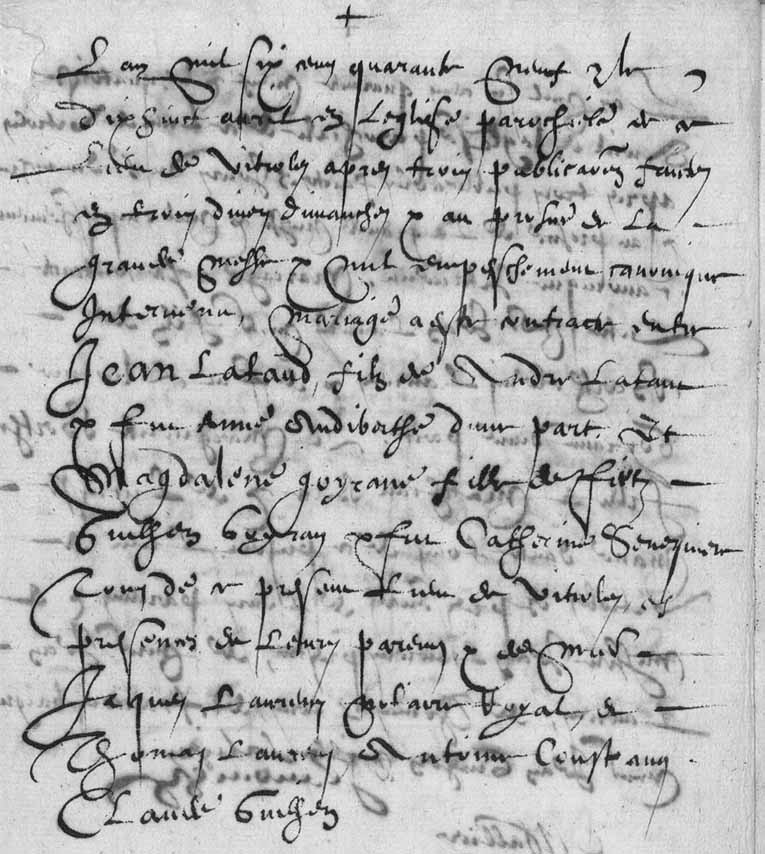 +
L an mil six cens quarante neuf & le
dixhuict auril en L eglise parochielle de ce
Lieu de Vitroles apres trois publications faictes
en trois diuers dimanches & au prosne de La
grande Messe & nul empeschement canonique
Interuenu, Mariage a esté contracté entre
Jean Lataud, filz de Andre Lataud
& fut Anne Audiberthe d'une part, Et
Magdalene goyrane fille de fut
Guilhen goyran & fut Catherine
Tous de ce present Lieu de Vitroles, es
presences de Leurs parens & de
Jaques Laurens Notaire Royal, de
Thomas Laurens Antoine Constans
Claude Guilhen